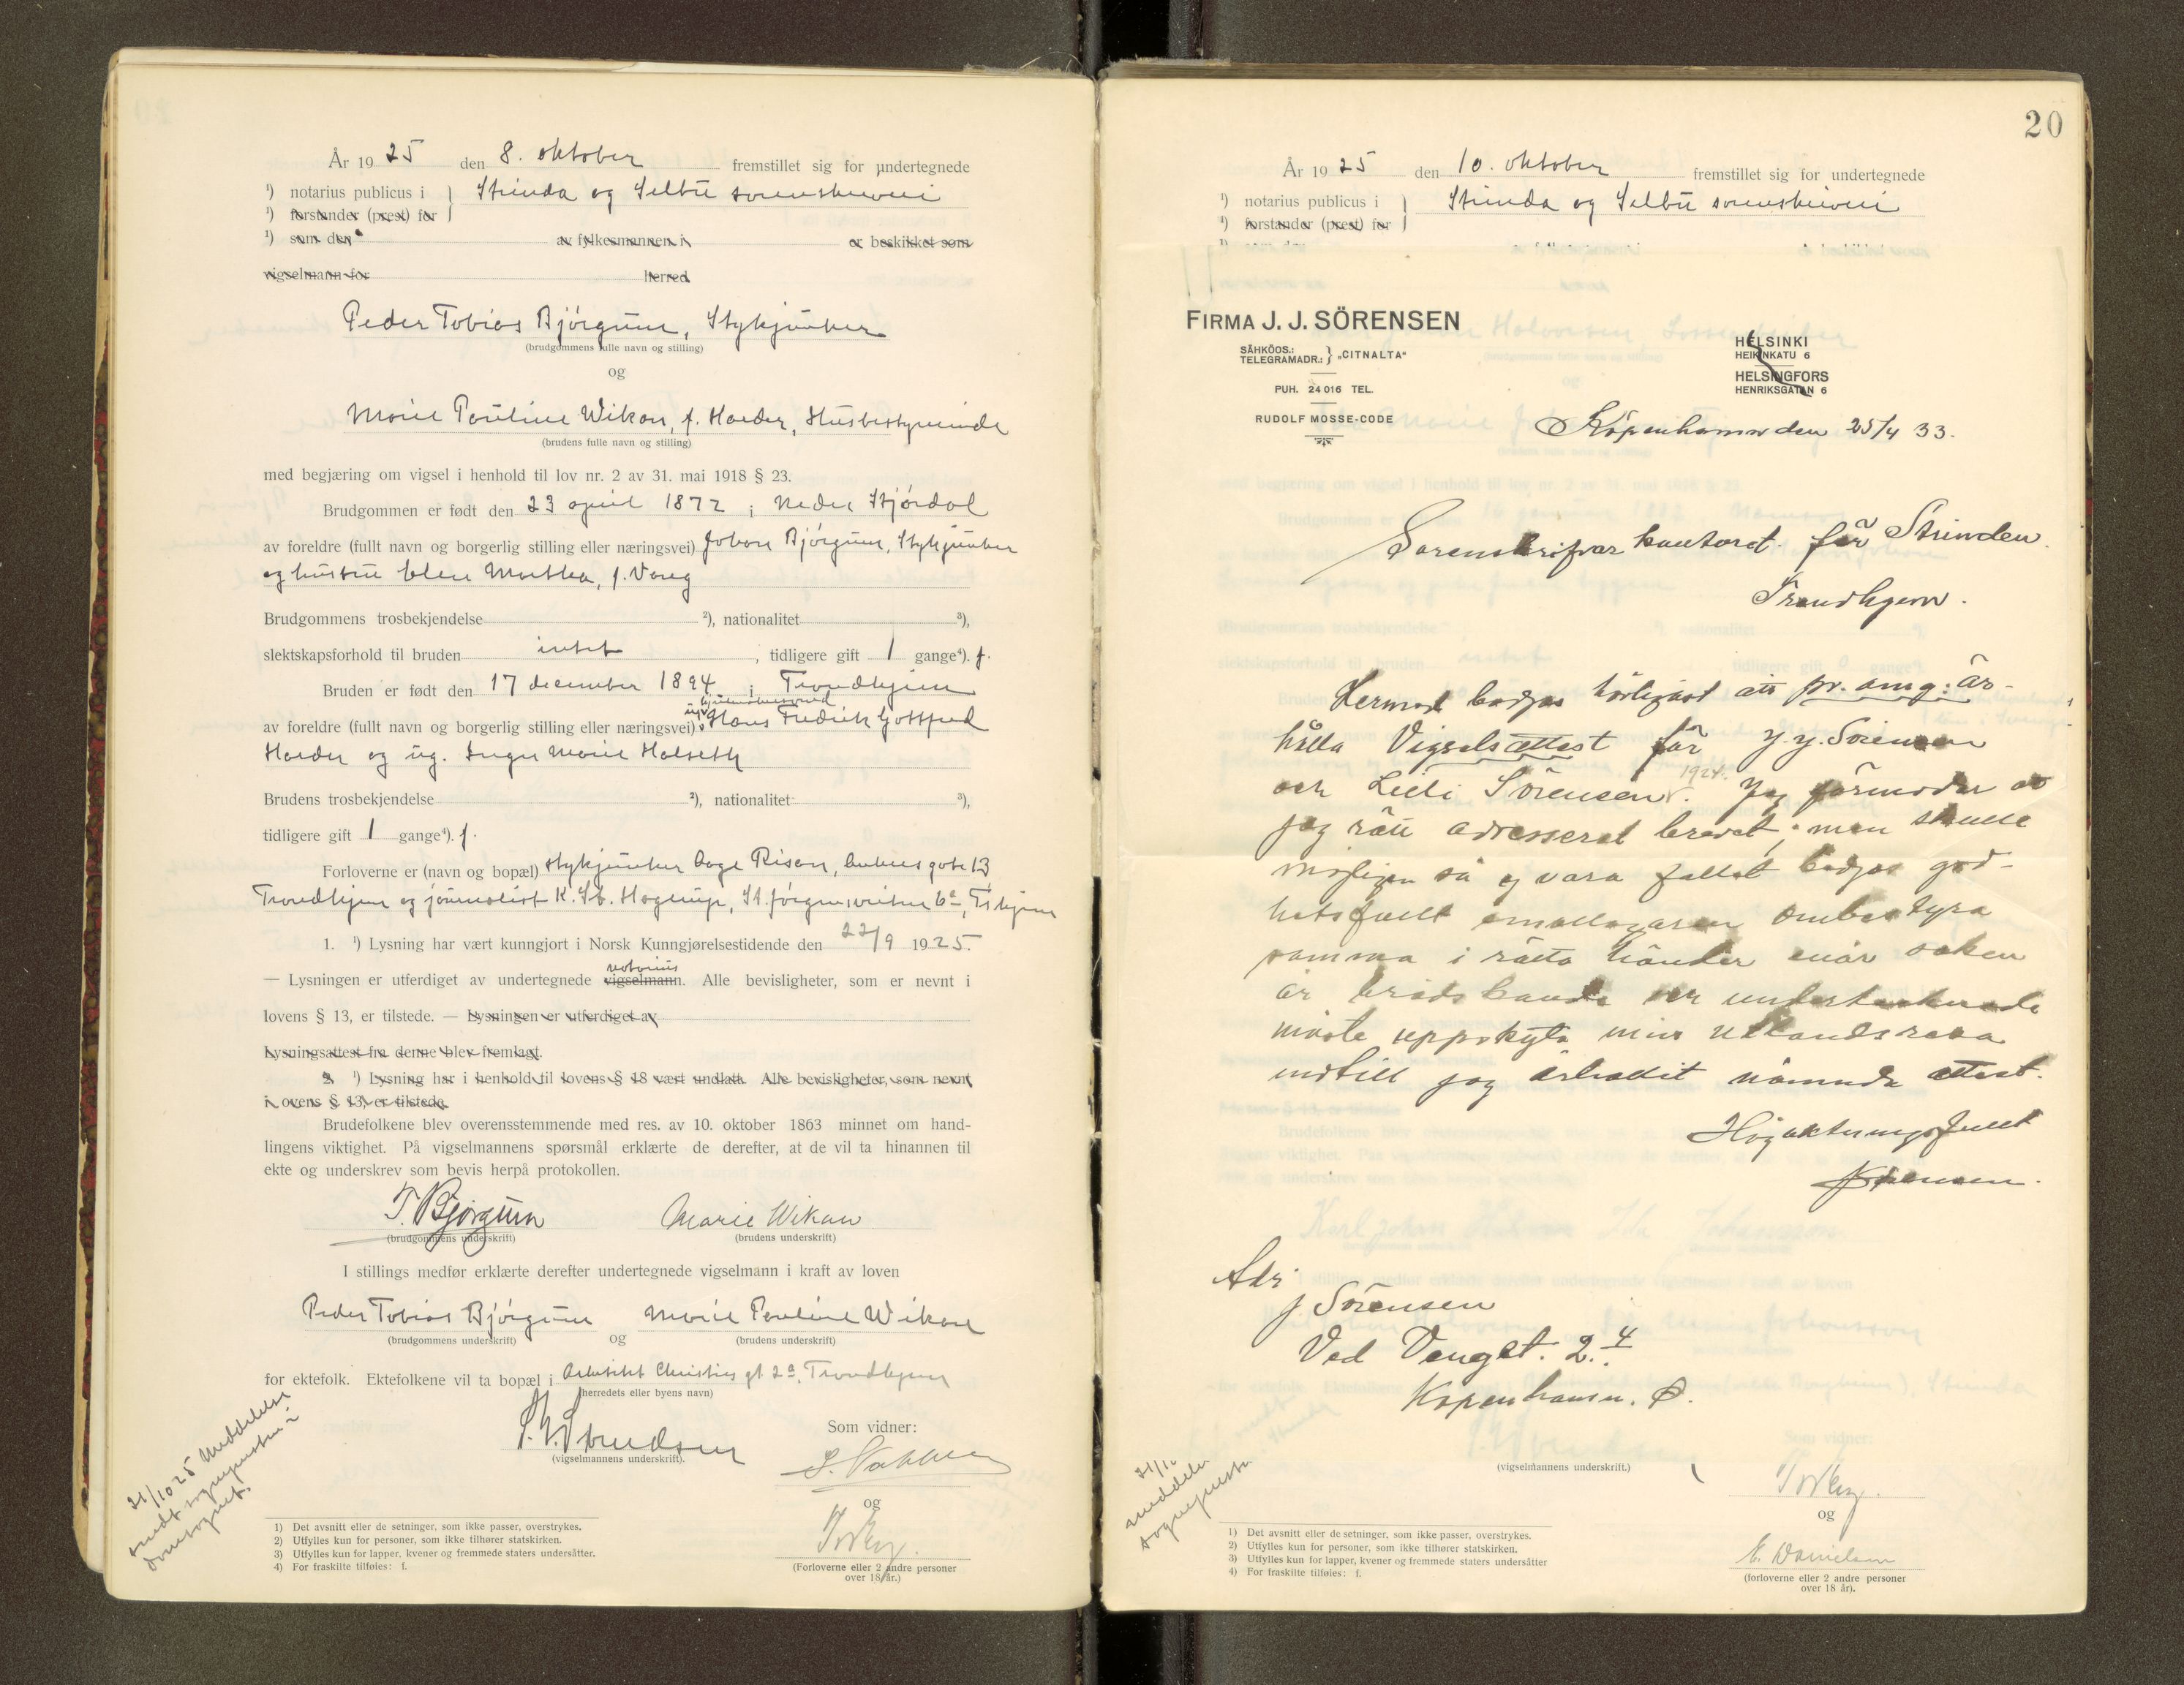 År 1925 den 8. oktober fremstillet sig for undertegnede
¹) notarius publicus i } Strinda og Selbu sorenskriveri
¹) forstander (prest) for
¹) som den av fylkesmannen i er beskikket som
vigselmann for herred
Peder Tobias Bjørgum, Stykjunker
(brudgommens fulle navn og stilling)
og
Marie Pauline Wikan, f. Harder, Husbestyrerinde
(brudens fulle navn og stilling)
med begjæring om vigsel i henhold til lov nr. 2 av 31. mai 1918 § 23.
Brudgommen er født den 23 april 1872 i Nedre Stjørdal
av foreldre (fullt navn og borgerlig stilling eller næringsvei) Johan Bjørgum, Stykjunker
og hustru Elen Martha, f. Vareg
Brudgommens trosbekjendelse ²), nationalitet ³),
slektskapsforhold til bruden intet, tidligere gift 1 gange⁴). f.
Bruden er født den 17 december 1894 i Trondhjem
av foreldre (fullt navn og borgerlig stilling eller næringsvei) Hans Fredrik Gottfred
Harder og ug. Inger Marie Halseth
Brudens trosbekjendelse ²), nationalitet ³),
tidligere gift 1 gange⁴). f.
Forloverne er (navn og bopæl) stykjunker Aage Risan, gate 13
Trondhjem og journalist K. St. Hagrup, St. Jørgensveiten 6ᵃ, T.hjem
1. ¹) Lysning har vært kunngjort i Norsk Kunngjørelsestidende den 22/9 1925.
notarius
— Lysningen er utferdiget av undertegnede vigselmann. Alle bevisligheter, som er nevnt i
lovens § 13, er tilstede. — Lysningen er utferdiget av
Lysningsattest fra denne blev fremlagt.
2. ¹) Lysning har i henhold til lovens § 18 vært undlatt. Alle bevisligheter, som nevnt
i ovens § 13, er tilstede.
Brudefolkene blev overensstemmende med res. av 10. oktober 1863 minnet om hand-
lingens viktighet. På vigselmannens spørsmål erklærte de derefter, at de vil ta hinannen til
ekte og underskrev som bevis herpå protokollen.
T. Bjørgum Marie Wikan
(brudgommens underskrift) (brudens underskrift)
I stillings medfør erklærte derefter undertegnede vigselmann i kraft av loven
Peder Tobias Bjørgum og Marie Pauline Wikan
(brudgommens underskrift) (brudens underskrift)
for ektefolk. Ektefolkene vil ta bopæl i Arkitekt Christies gt 2ᵃ, Trondhjem
(herredets eller byens navn)
(vigselmannens underskrift).
Som vidner:
og
(Forloverne eller 2 andre personer
over 18 år.)
21/10 25 meddelelse
sendt sognepresten i
domsognet.
1) Det avsnitt eller de setninger, som ikke passer, overstrykes.
2) Utfylles kun for personer, som ikke tilhører statskirken.
3) Utfylles kun for lapper, kvener og fremmede staters undersåtter.
4) For fraskilte tilføies: f.
20
År 1925 den 10. oktober fremstillet sig for undertegnede
¹) notarius publicus i } Strinda og Selbu sorenskriveri
¹) forstander (prest) for
FIRMA J. J. SÖRENSEN
SÄHKÖOS.:
TELEGRAMADR.: } „CITNALTA"
PUH. 24 016 TEL.
RUDOLF MOSSE-CODE
HELSINKI
HEIKINKATU 6
HELSINGFORS
HENRIKSGATAN 6
Köpenhamn den 25/4 33.
Sorenskrifvar kontoret för Strinden
Trondhjem.
Hermed bedjes höfligast att pr. omg. är-
hålla Vigselsattest för J. J. Sörensen
1924.
och Lilli Sörensen. Jag förmodar at
jag rätt adresserat brevet; men skulle
möjligen så ej vara fallet bedjes god-
hetsfullt emottagaren ombestyra
samma i rätta händer enär saken
är brådskande och undertecknade
måste uppskyta min utlandsresa
indtill jag erhållit nämnda attest.
Högaktningsfullt
JSörensen.
Adr
J Sörensen
Ved Vænget. 2.4
Köpenhamn. Ø.
(vigselmannens underskrift.)
Som vidner:
og
E. Danielsen
(forloverne eller 2 andre personer
over 18 år).
21/10
meddele
sogneprest
1) Det avsnitt eller de setninger, som ikke passer, overstrykes.
2) Utfylles kun for personer, som ikke tilhører statskirken.
3) Utfylles kun for lapper, kvener og fremmede staters undersåtter
4) For fraskilte tilføies: f.